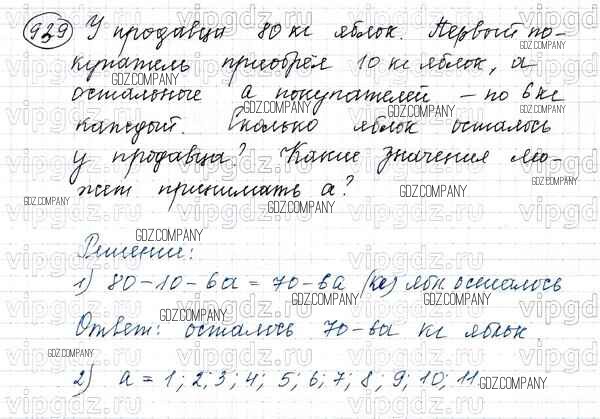 929 У продавца 80 кг яблок. Первый по-
купатель приобрёл 10 кг яблок, а
остальные a покупателей – по 6 кг
каждый. Сколько яблок осталось
у продавца? Какие значения мо-
жет принимать a?
Решение:
1) 80-10-6a = 70-6a (кг) ябл осталось
Ответ: осталось 70-6a кг яблок.
2) a = 1; 2; 3; 4; 5; 6; 7; 8; 9; 10; 11.
GDZ.COMPANY
vipgdz.ru